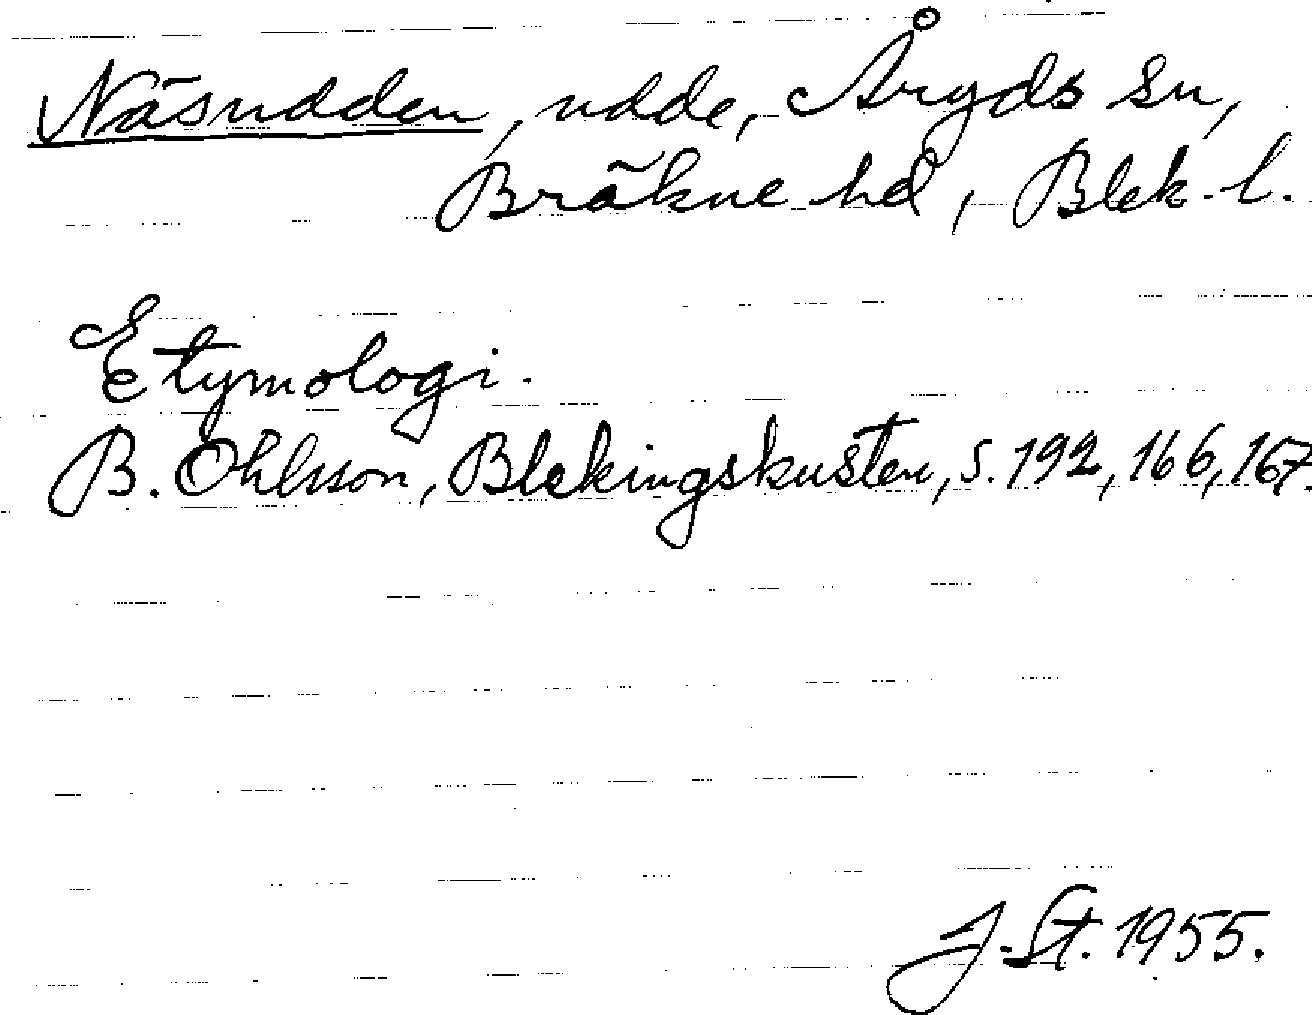 Näsudden, udde, Åryds sn,
Bräkne hd, Blek. l.
Etymologi.
B. Ohlsson, Blekingskusten, s. 192, 166, 167.
J. St. 1955.